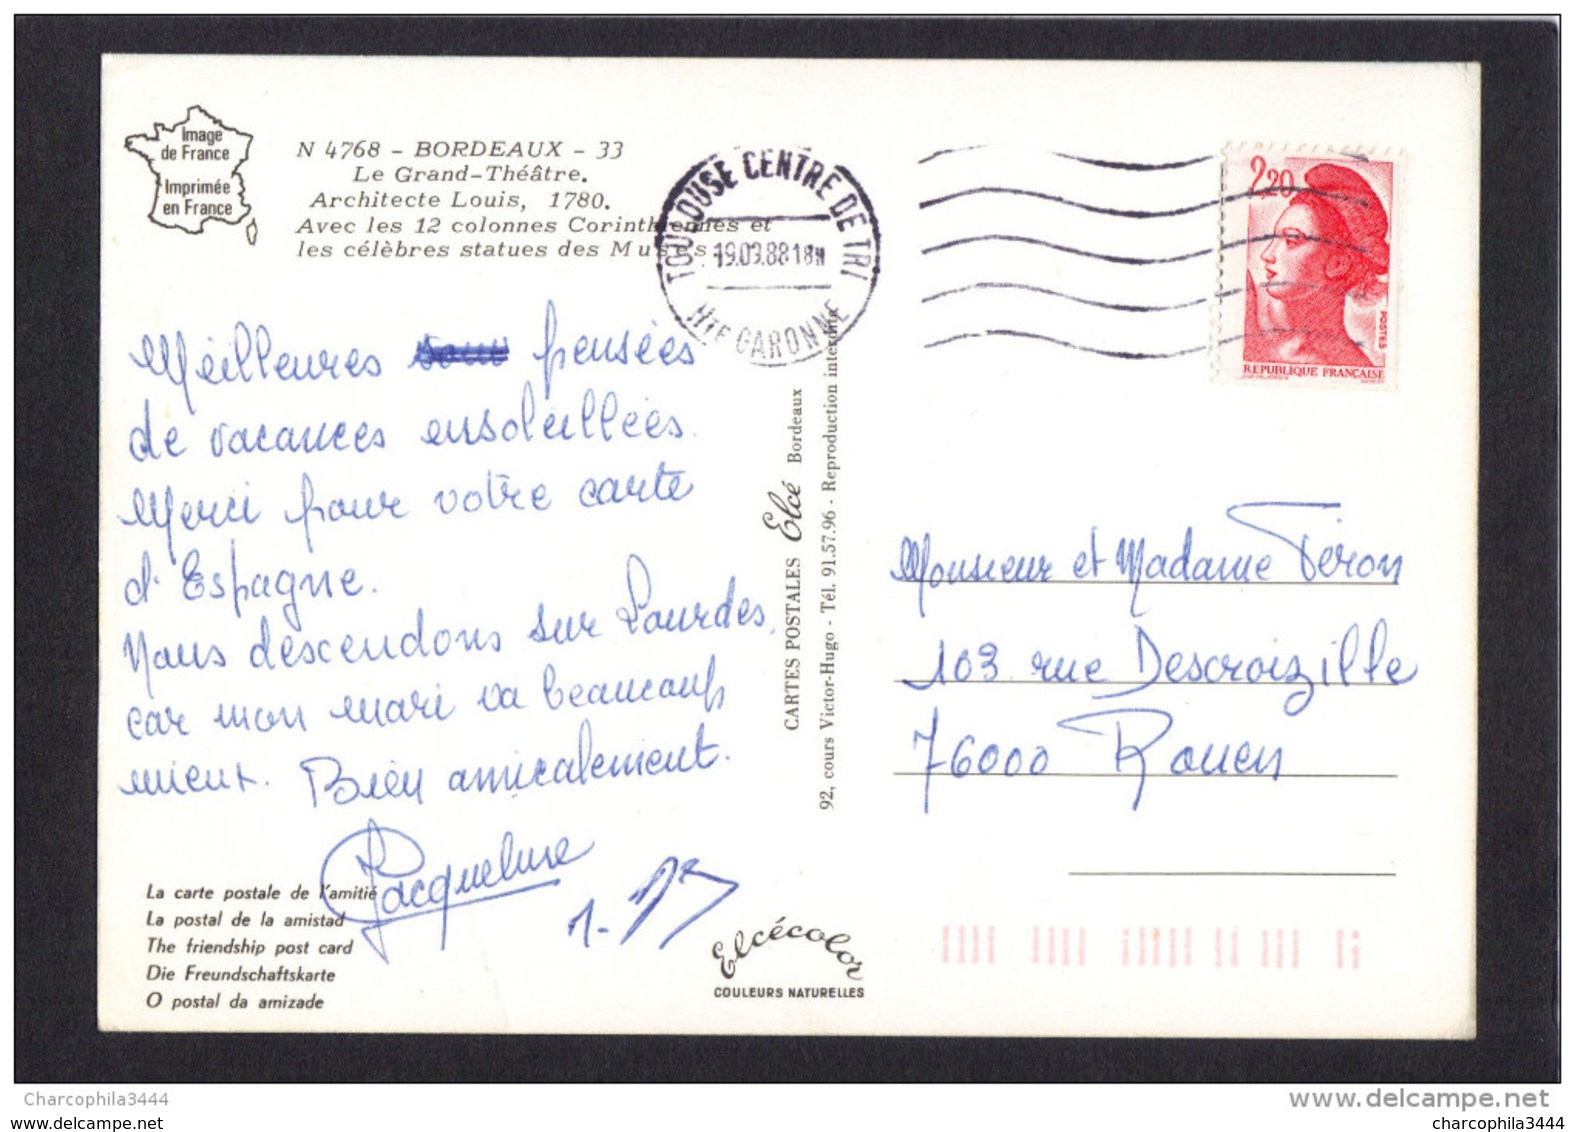 Image
de France
Imprimée
en France
N 4768 - BORDEAUX - 33
Le Grand-Théâtre.
Architecte Louis, 1780.
Avec les 12 colonnes Corinthiennes et
les célèbres statues des Muses.
TOULOUSE CENTRE DE TRI
19.09.88 18H
HTE GARONNE
2,20
POSTES
REPUBLIQUE FRANCAISE
Meilleures pensées
de vacances ensoleillées.
Merci pour votre carte
d'Espagne.
Nous descendons sur Lourdes,
car mon mari va beaucoup
mieux. Bien amicalement.
Jacqueline
La carte postale de l'amitié
La postal de la amistad
The friendship post card
Die Freundschaftskarte
O postal da amizade
CARTES POSTALES Elcé Bordeaux
92, cours Victor-Hugo - Tél. 91.57.96 - Reproduction interdite
Elcécolor
COULEURS NATURELLES
Monsieur et Madame Piron
103 rue Descroizille
76000 Rouen
Charcophila3444
delcampe.net
charcophila3444
charcophila3444